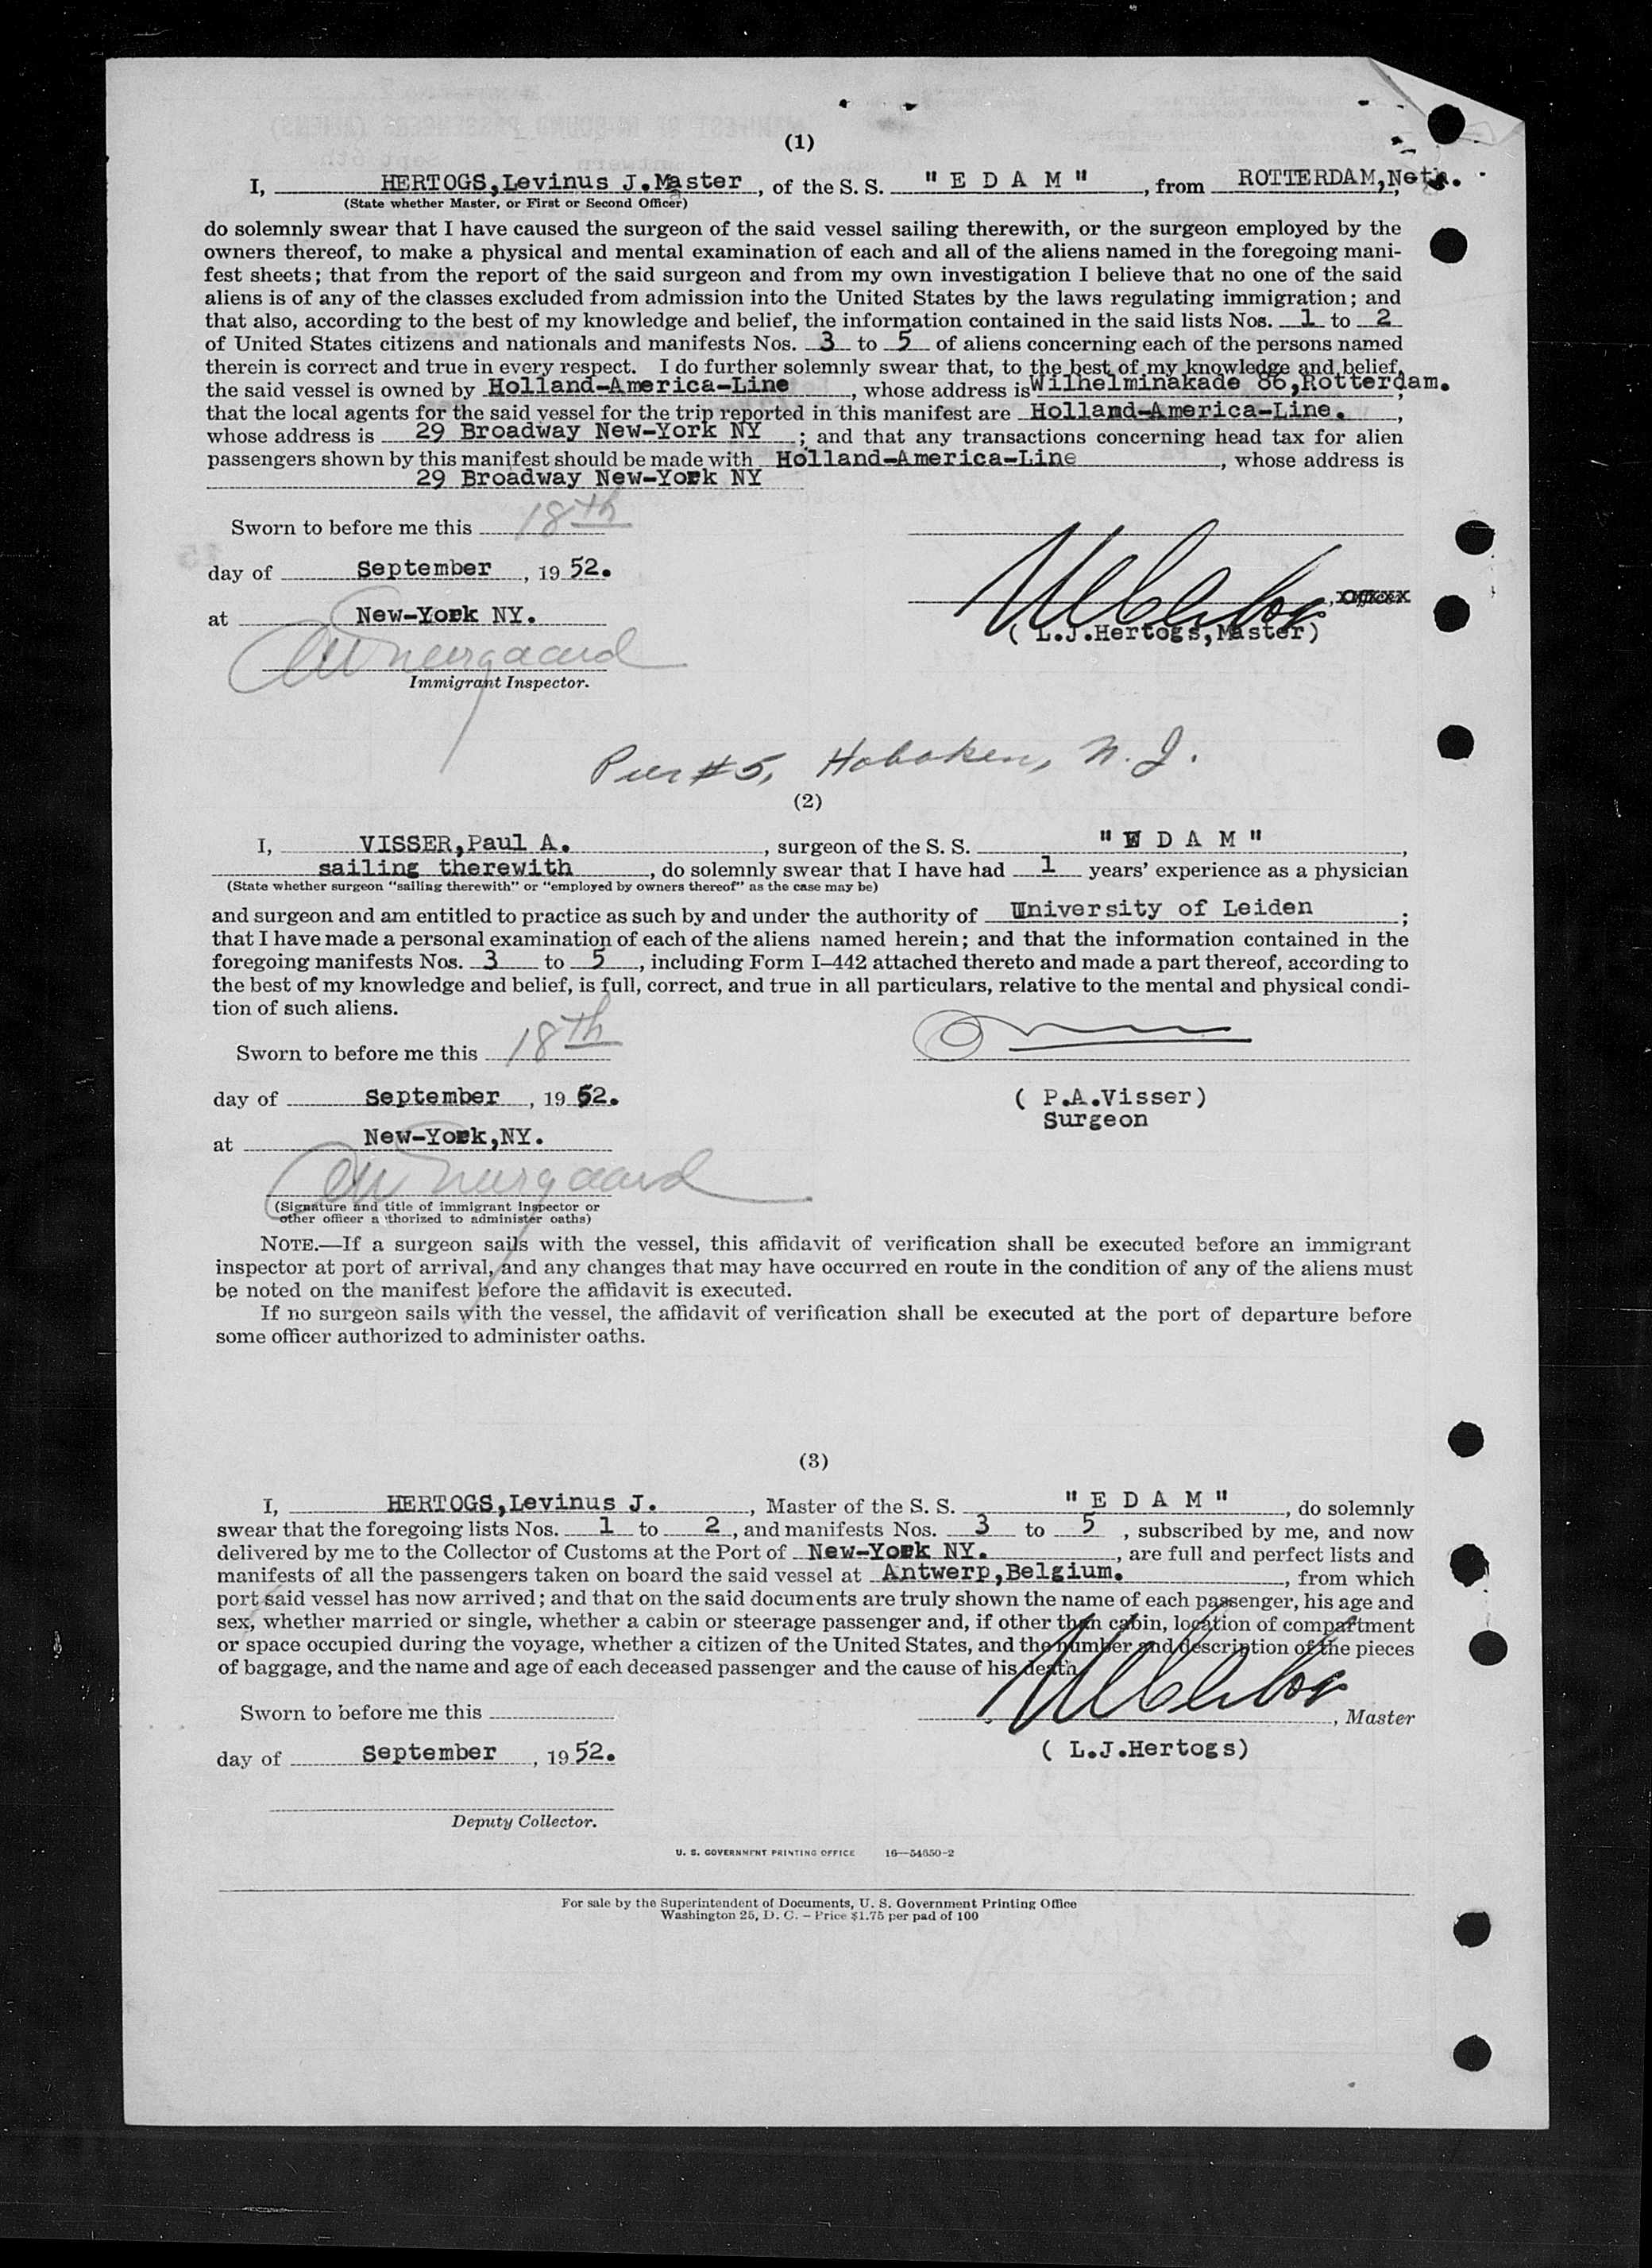 (1)
I, HERTOGS,Levinus J.Master, of the S. S. " E D A M ", from ROTTERDAM,Neth.
(State whether Master, or First or Second Officer)
do solemnly swear that I have caused the surgeon of the said vessel sailing therewith, or the surgeon employed by the
owners thereof, to make a physical and mental examination of each and all of the aliens named in the foregoing mani-
fest sheets; that from the report of the said surgeon and from my own investigation I believe that no one of the said
aliens is of any of the classes excluded from admission into the United States by the laws regulating immigration; and
that also, according to the best of my knowledge and belief, the information contained in the said lists Nos. 1 to 2
of United States citizens and nationals and manifests Nos. 3 to 5 of aliens concerning each of the persons named
therein is correct and true in every respect. I do further solemnly swear that, to the best of my knowledge and belief,
the said vessel is owned by Holland-America-Line, whose address is Wilhelminakade 86,Rotterdam.,
that the local agents for the said vessel for the trip reported in this manifest are Holland-America-Line.,
whose address is 29 Broadway New-York NY; and that any transactions concerning head tax for alien
passengers shown by this manifest should be made with Holland-America-Line, whose address is
29 Broadway New-York NY
Sworn to before me this 18th
day of September, 19 52.
at New-York NY.
, Officer
( L.J.Hertogs,Master)
Immigrant Inspector.
Pier #5, Hoboken, N. J.
(2)
I, VISSER,Paul A., surgeon of the S. S. " E D A M ",
sailing therewith, do solemnly swear that I have had 1 years' experience as a physician
(State whether surgeon "sailing therewith" or "employed by owners thereof" as the case may be)
and surgeon and am entitled to practice as such by and under the authority of University of Leiden;
that I have made a personal examination of each of the aliens named herein; and that the information contained in the
foregoing manifests Nos. 3 to 5, including Form I–442 attached thereto and made a part thereof, according to
the best of my knowledge and belief, is full, correct, and true in all particulars, relative to the mental and physical condi-
tion of such aliens.
Sworn to before me this 18th
day of September, 19 52.
( P.A.Visser)
Surgeon
at New-York,NY.
(Signature and title of immigrant inspector or
other officer authorized to administer oaths)
NOTE.—If a surgeon sails with the vessel, this affidavit of verification shall be executed before an immigrant
inspector at port of arrival, and any changes that may have occurred en route in the condition of any of the aliens must
be noted on the manifest before the affidavit is executed.
If no surgeon sails with the vessel, the affidavit of verification shall be executed at the port of departure before
some officer authorized to administer oaths.
(3)
I, HERTOGS,Levinus J., Master of the S. S. " E D A M ", do solemnly
swear that the foregoing lists Nos. 1 to 2, and manifests Nos. 3 to 5, subscribed by me, and now
delivered by me to the Collector of Customs at the Port of New-York NY., are full and perfect lists and
manifests of all the passengers taken on board the said vessel at Antwerp,Belgium., from which
port said vessel has now arrived; and that on the said documents are truly shown the name of each passenger, his age and
sex, whether married or single, whether a cabin or steerage passenger and, if other than cabin, location of compartment
or space occupied during the voyage, whether a citizen of the United States, and the number and description of the pieces
of baggage, and the name and age of each deceased passenger and the cause of his death.
Sworn to before me this
, Master
day of September, 19 52.
( L.J.Hertogs)
Deputy Collector.
U. S. GOVERNMENT PRINTING OFFICE 16—54650-2
For sale by the Superintendent of Documents, U. S. Government Printing Office
Washington 25, D. C. - Price $1.75 per pad of 100